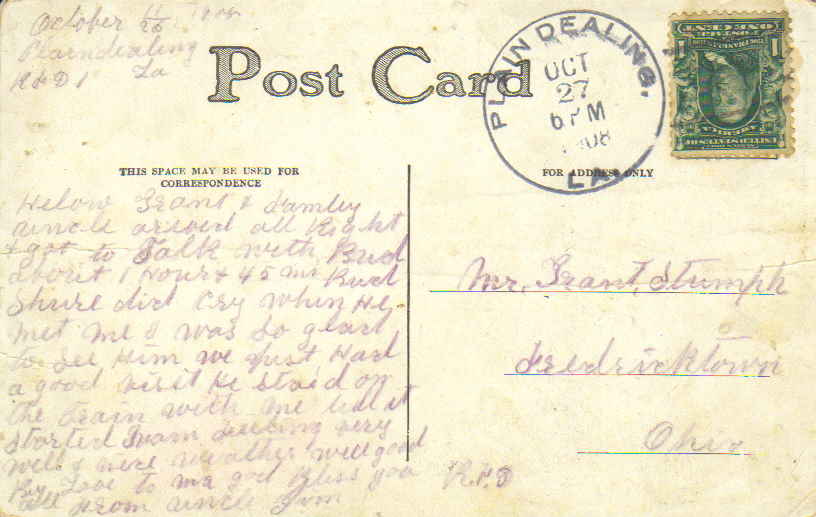 October 26
Plaindealing
R F D 1 La
Post Card
PLAIN DEALING,
OCT
27
6 PM
1908
LA.
THIS SPACE MAY BE USED FOR
CORRESPONDENCE
FOR ADDRESS ONLY
Helow Grant & Famley
uncle arived all Right
& got to Talk with Bud
about 1 Hour & 45 ms Bud
Shure did Cry when He
met me I was so glad
to See Him we just Had
a good visit He staid on
the train with me till it
started Sam feeling very
well & nice weather well good
By Love to ma god Bless you
all From uncle Tom
Mr. Grant Stumph
Fredricktown
Ohio
R.F.D